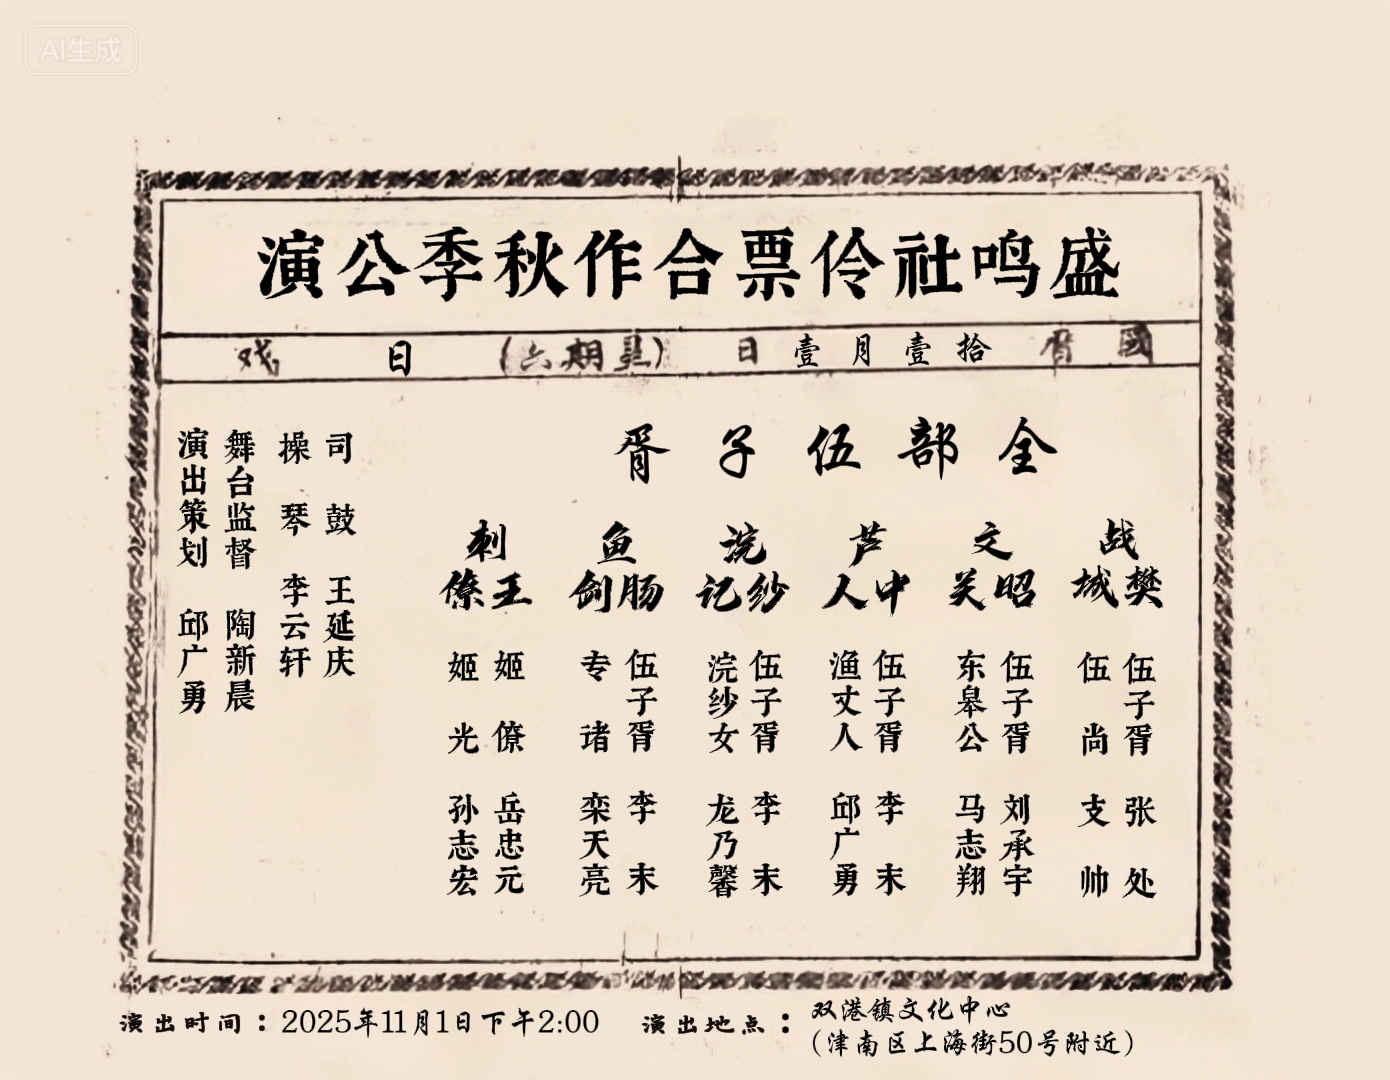 AI生成
盛鸣社伶票合作秋季公演
國曆 拾壹月壹日 (星期六) 日戏
全部伍子胥
战樊城
伍子胥 张处
伍尚 支帅
文昭关
伍子胥 刘承宇
东皋公 马志翔
芦中人
伍子胥 李末
渔丈人 邱广勇
浣纱记
伍子胥 李末
浣纱女 龙乃馨
鱼肠剑
伍子胥 李末
专诸 栾天亮
刺王僚
姬僚 岳忠元
姬光 孙志宏
司鼓 王延庆
操琴 李云轩
舞台监督 陶新晨
演出策划 邱广勇
演出时间:2025年11月1日下午2:00
演出地点:双港镇文化中心
(津南区上海街50号附近)